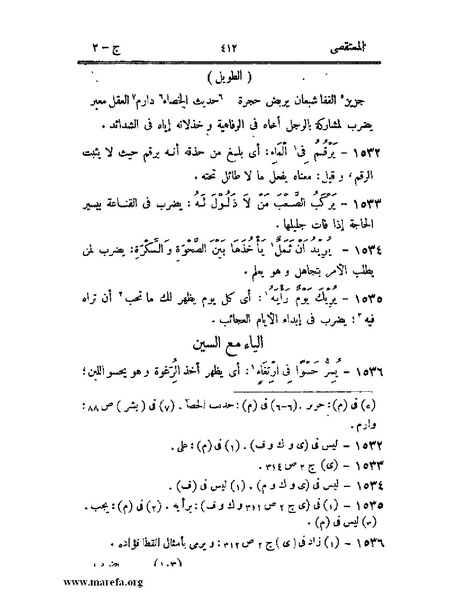 المستقصى ٤١٢ ج - ٢
( الطويل )
جزيز⁵ القفا شبعان يربض حجرة ⁶حديث الخصاء⁶ دارم⁷ العفل معبر
يضرب لمشاركة الرجل أخاه فى الرفاهية و خذلانه إياه فى الشدائد .
١٥٣٢ - يَرْقُمُ فِى¹ الْمَاءِ: أى بلغ من حذقه أنه يرقم حيث لا يثبت
الرقم، و قيل: معناه يفعل ما لا طائل تحته .
١٥٣٣ - يَرْكَبُ الصَّعْبَ مَنْ لَا ذَلُولَ لَهُ: يضرب فى القناعة بيسير
الحاجة إذا فات جليلها .
١٥٣٤ - يُرِيدُ أَنْ يَأْخُذَهَا بَيْنَ الصَّحْوَةِ وَ السَّكْرَةِ: يضرب لمن
يطلب الأمر بتجاهل و هو يعلم .
١٥٣٥ - يُرِيكَ يَوْمٌ بِرَأْيِهِ¹: أى كل يوم يظهر لك ما تحب² أن تراه
فيه³؛ يضرب فى إبداء الأيام العجائب .
الياء مع السين
١٥٣٦ - يُسِرُّ حَسْوًا فِى ارْتِغَاءٍ¹: أى يظهر أخذ الرُّغوة و هو يحسو اللبن؛
(٥) فى (م): حرير . (٦-٦) فى (م): حدب الحصا . (٧) فى (بشر) ص ٨٨:
وارم .
١٥٣٢ - ليس فى (ى و ك و ف) . (١) فى (م): على .
١٥٣٣ - (ى) ج ٢ ص ٣١٤ .
١٥٣٤ - ليس فى (ى و ك و م) . (١) ليس فى (ف) .
١٥٣٥ - (١) فى (ى ج ٢ ص ٣١١ و ك و ف): برأيه . (٢) فى (م): يجب .
(٣) ليس فى (م) .
١٥٣٦ - (١) زاد فى (ى) ج ٢ ص ٣١٢: و يرمى بأمثال القطا فؤاده .
(١٠٣)
www.marefa.org